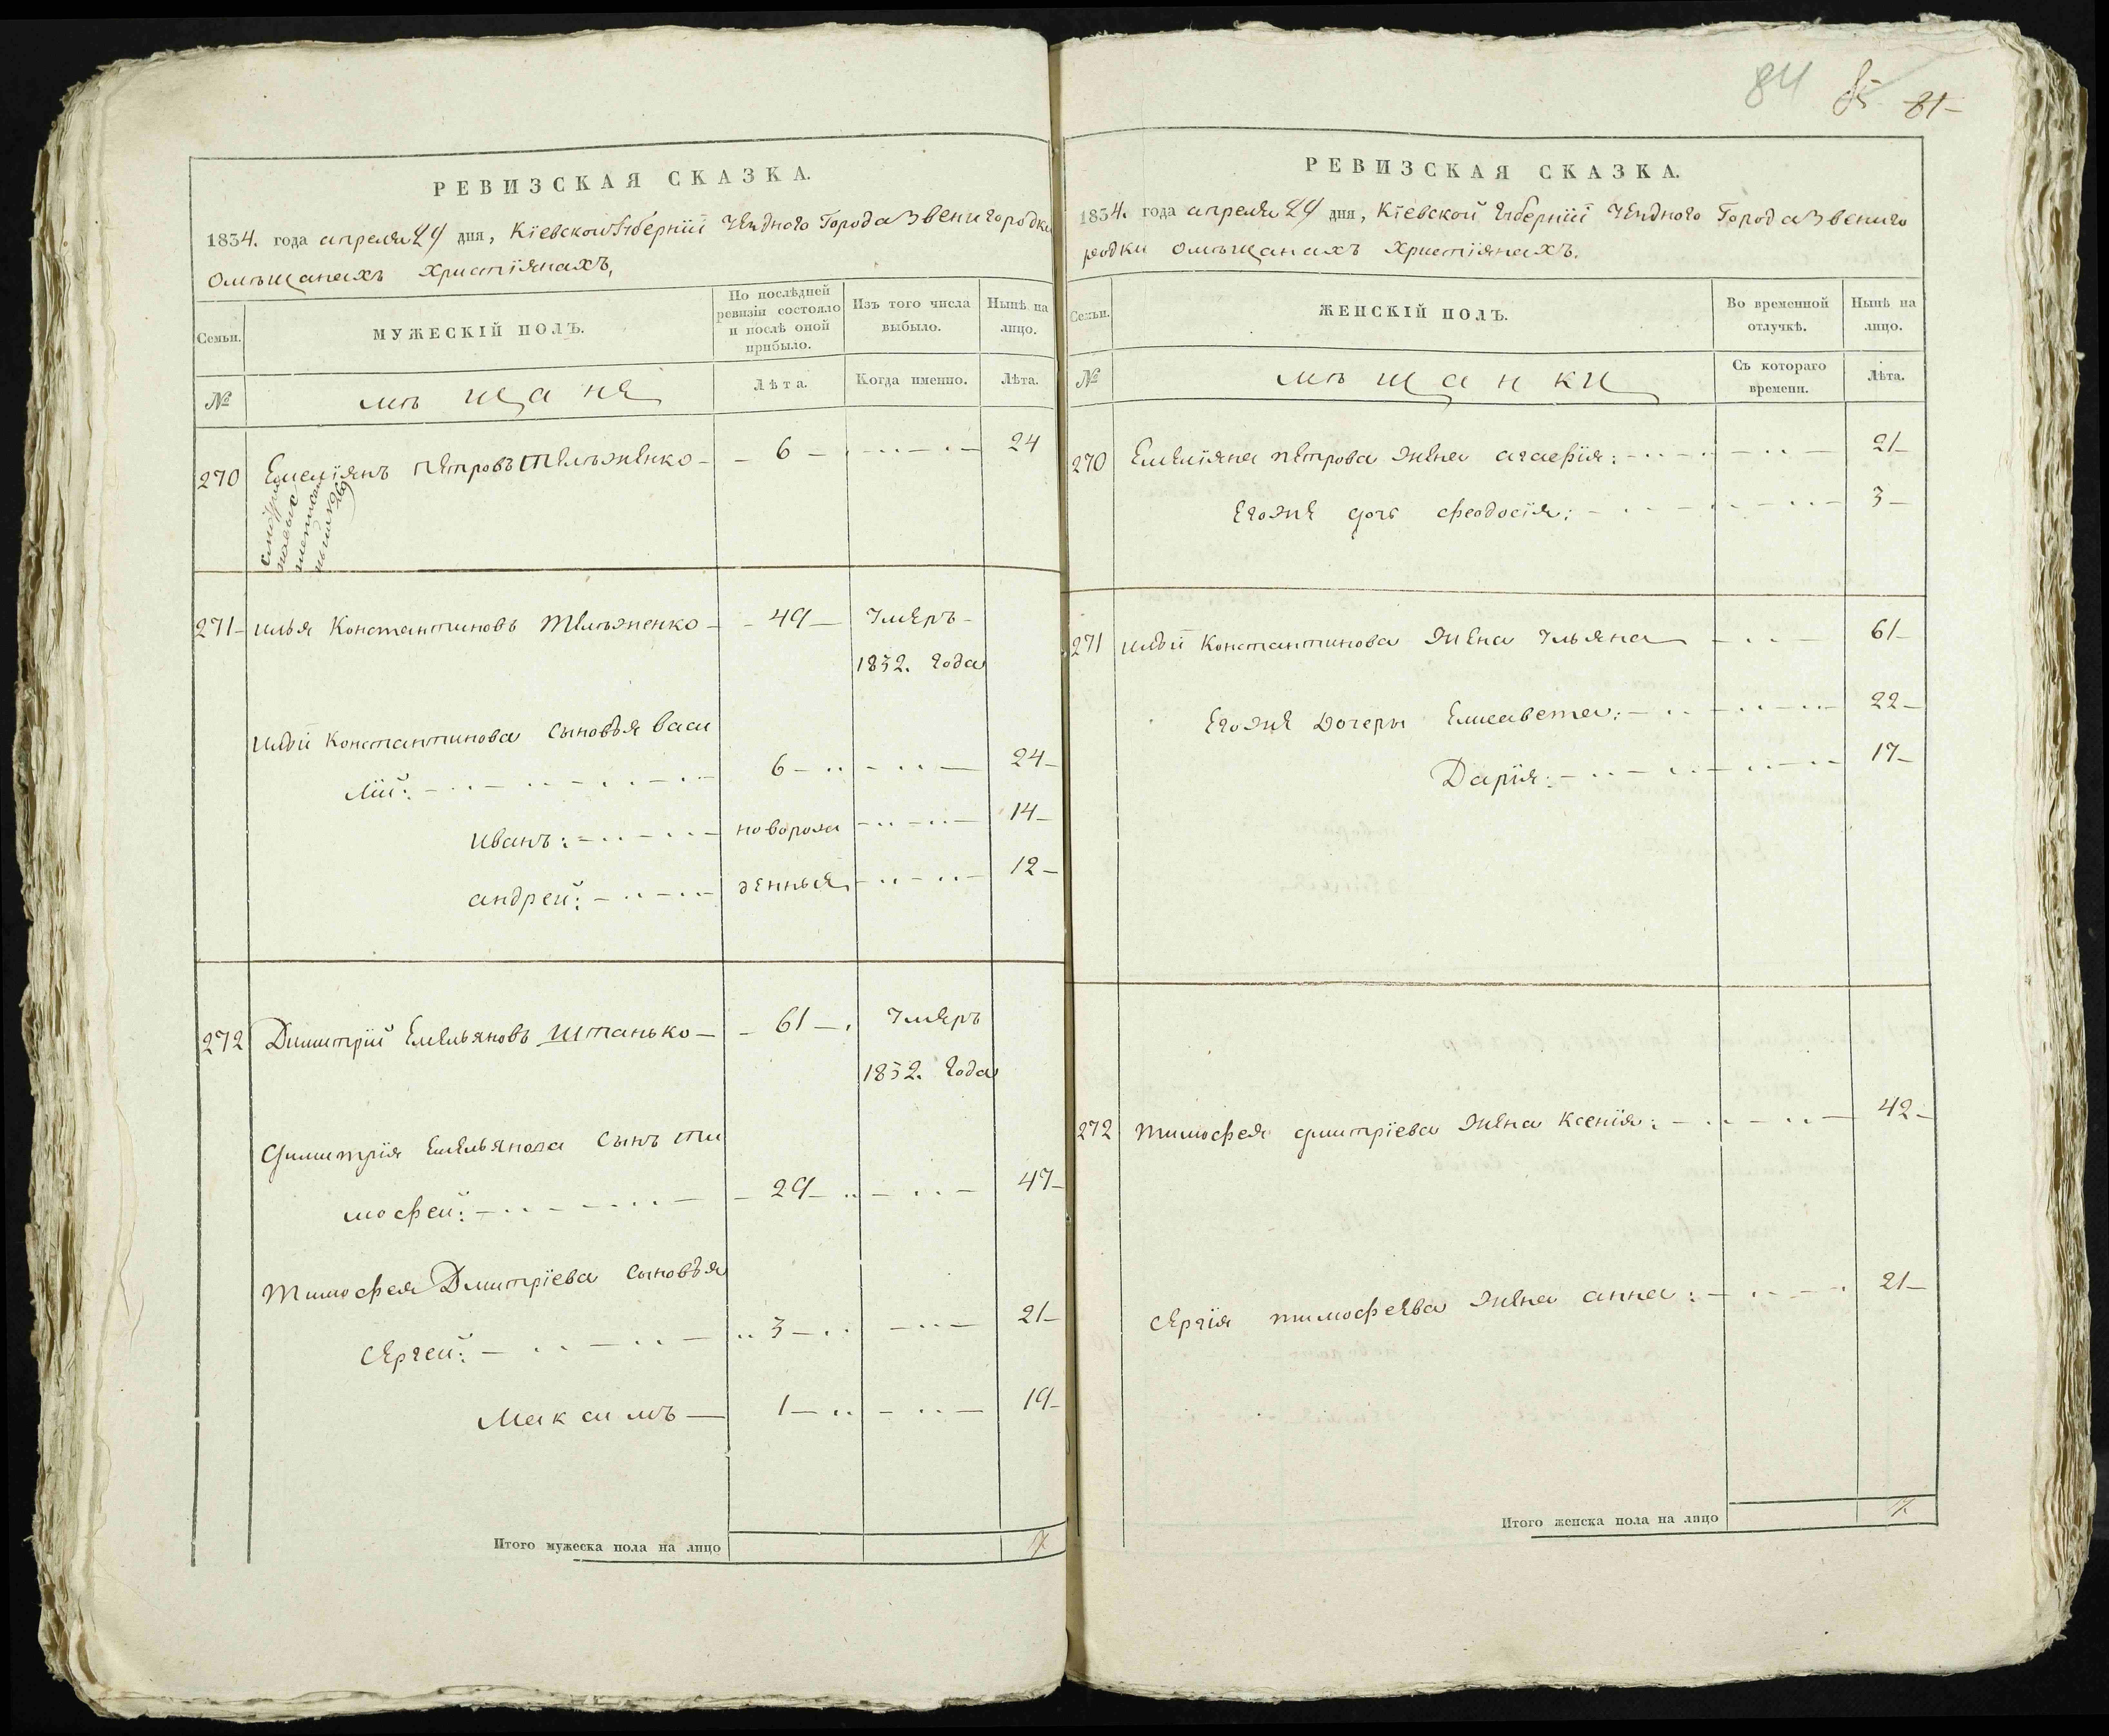 РЕВИЗСКАЯ СКАЗКА.
1834. года апреля 24 дня, Кіевской Губерніи Уѣздного Города Звенигородки
О мѣщанахъ Христіянахъ,
Семьи.
МУЖЕСКІЙ ПОЛЪ.
По послѣдней ревизіи состояло и послѣ оной прибыло.
Изъ того числа выбыло.
Нынѣ на лицо.
№
мѣщане
Лѣта.
Когда именно.
Лѣта.
270 Емеліянъ Петровъ Тельженко — 6 — 24
271 Илья Константиновъ Тельженко — 49 — Умеръ
1832. года
Ильи Константинова сыновья Васи
лій: 6 — 24
Иванъ: новорож 14
Андрей: денные 12
272 Димитрій Емельяновъ Штанько — 61 — Умеръ
1832. года
Димитрія Емельянова сынъ Ти
мофей: 29 — 47
Тимофея Дмитріева сыновья
Сергей: 3 — 21
Максимъ — 1 — 19
Итого мужеска пола на лицо
84 81
РЕВИЗСКАЯ СКАЗКА.
1834. года апреля 24 дня, Кіевской Губерніи Уѣздного Города Звениго
родки О мѣщанахъ Христіянахъ.
Семьи.
ЖЕНСКІЙ ПОЛЪ.
Во временной отлучкѣ.
Нынѣ на лицо.
№
мѣщанки
Съ котораго времени.
Лѣта.
270 Емеліяна Петрова жена Агафія: 21
Его же дочь Феодосія: 3
271 Ильи Константинова жена Ульяна 61
Его же дочери Елисавета: 22
Дарія: 17
272 Тимофея Дмитріева жена Ксенія: 42
Сергія Тимофеева жена Анна: 21
Итого женска пола на лицо 7